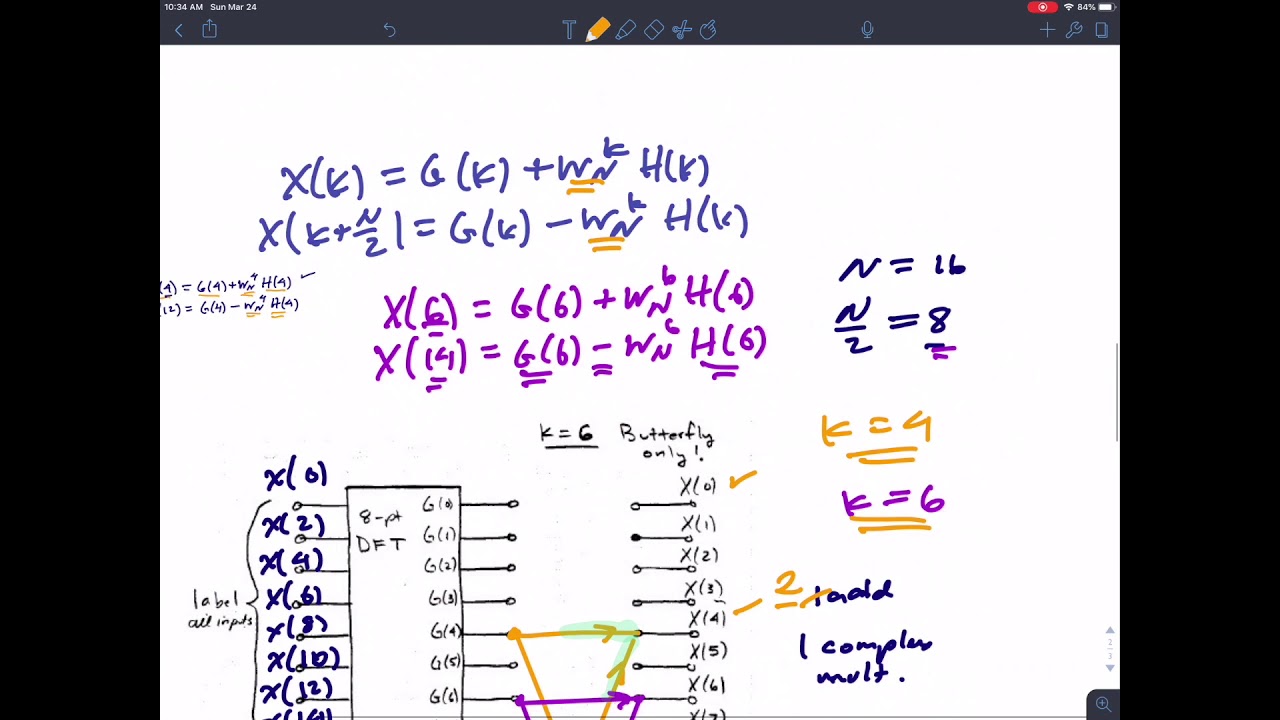 10:34 AM Sun Mar 24
84%
X(k) = G(k) + W_N^k H(k)
X(k+N/2) = G(k) - W_N^k H(k)
(4) = G(4) + W_N^4 H(4) ✓
(12) = G(4) - W_N^4 H(4)
N = 16
N/2 = 8
X(6) = G(6) + W_N^6 H(6)
X(14) = G(6) - W_N^6 H(6)
k = 4
k = 6
k = 6 Butterfly only!
label all inputs
x(0)
x(2)
x(4)
x(6)
x(8)
x(10)
x(12)
x(14)
8-pt
DFT
G(0)
G(1)
G(2)
G(3)
G(4)
G(5)
G(6)
X(0) ✓
X(1)
X(2)
X(3)
X(4)
X(5)
X(6)
X(7)
2 add
1 complex
mult.
2
3